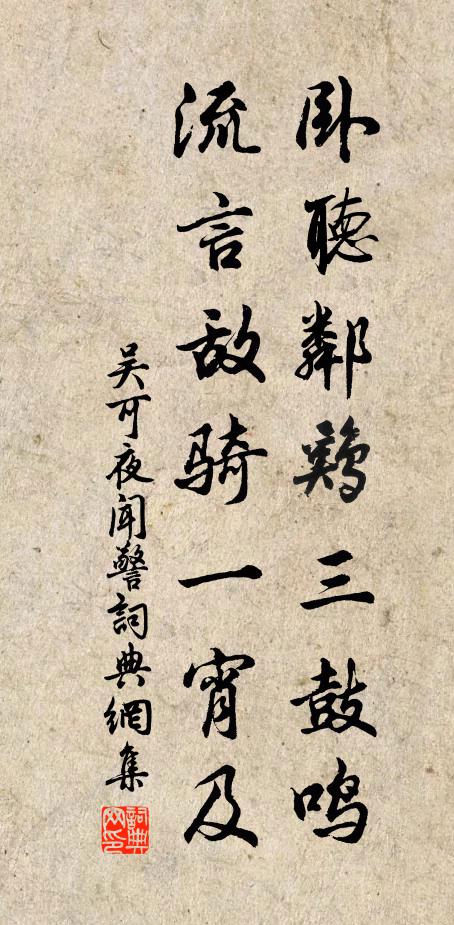 卧聽鄰鷄三鼓鳴
流言敵騎一宵及
吴可夜聞警詞典網集
詞典网印